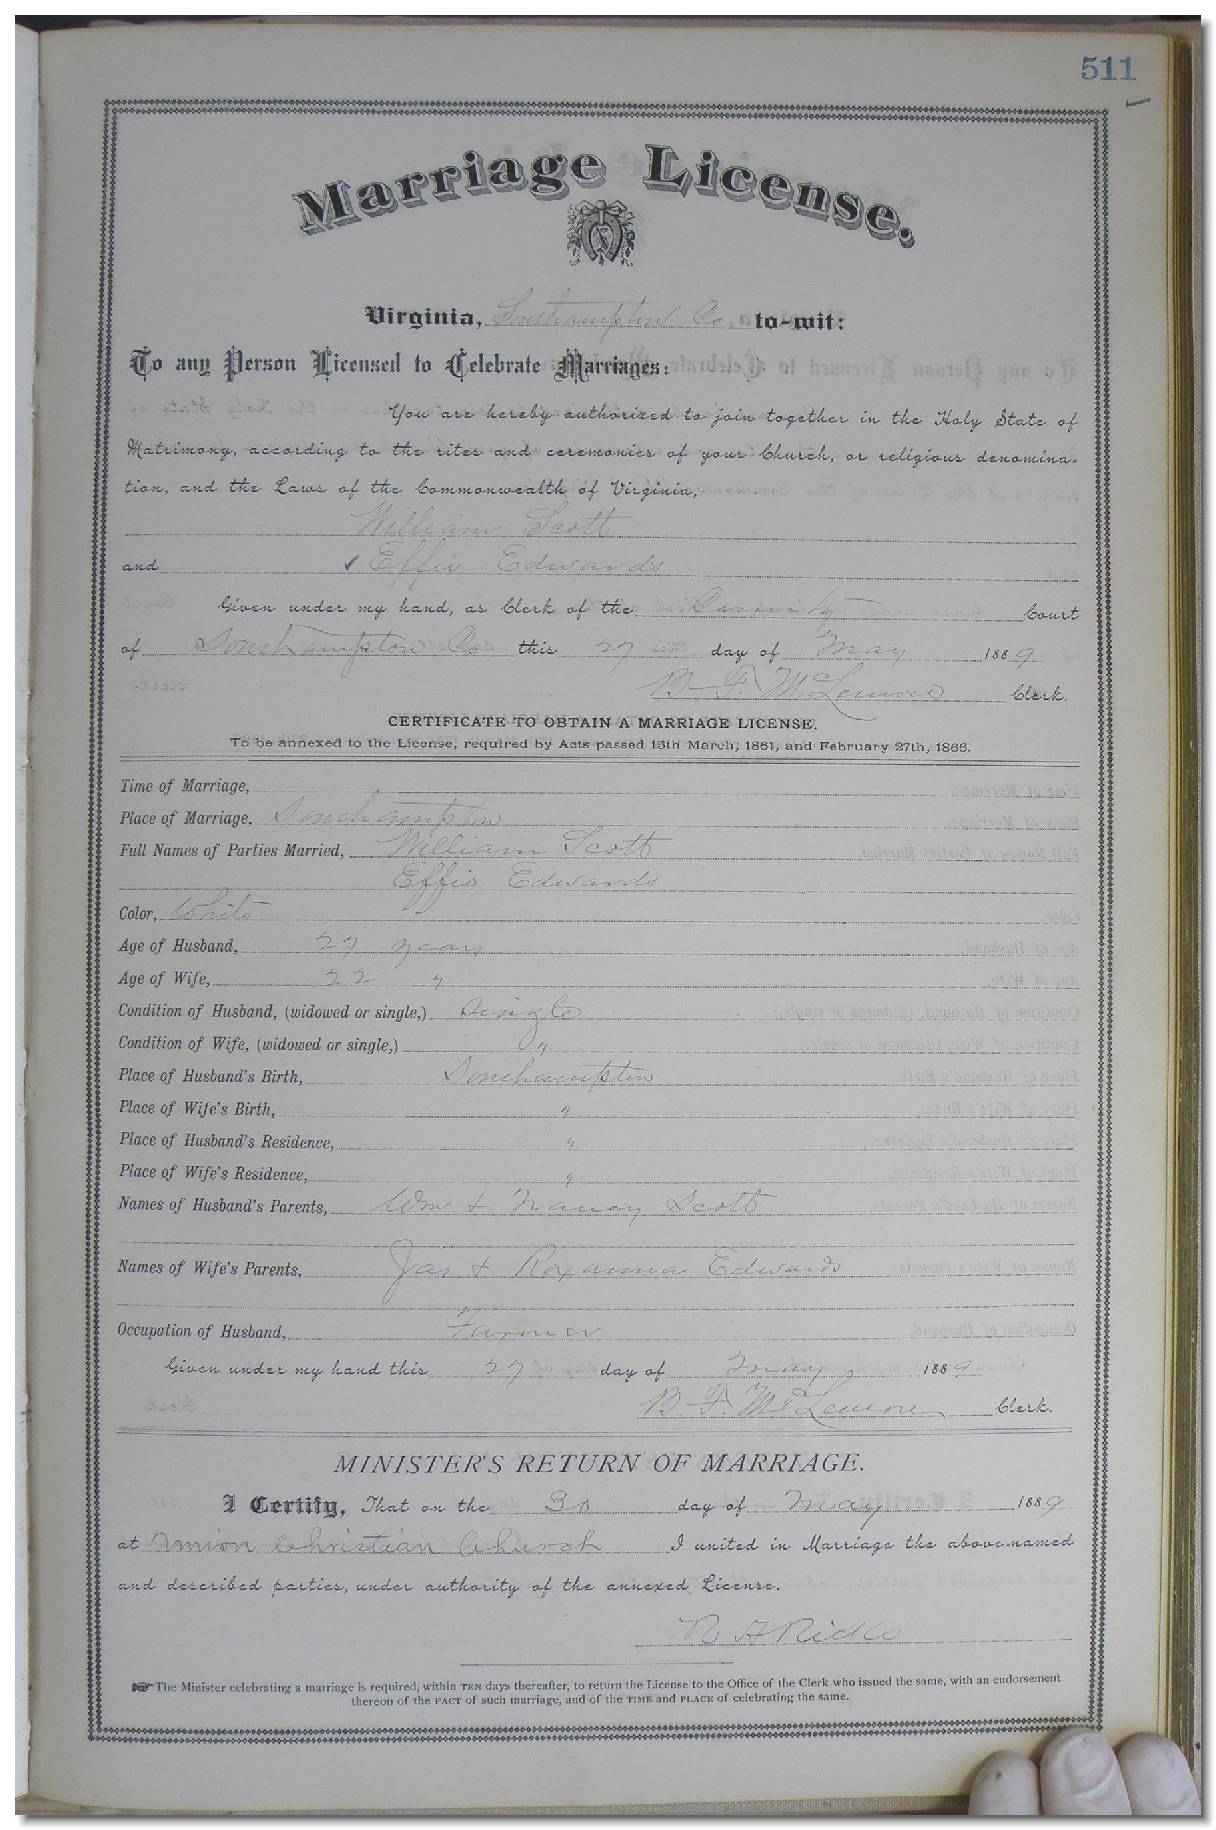 511
Marriage License.
Virginia, Southampton Co, to-wit:
To any Person Licensed to Celebrate Marriages:
You are hereby authorized to join together in the Holy State of
Matrimony, according to the rites and ceremonies of your Church, or religious denomina-
tion, and the Laws of the Commonwealth of Virginia,
William Scott
and Effie Edwards
Given under my hand, as Clerk of the County Court
of Southampton Co this 27 day of May 1889
B. F. McLemore Clerk.
CERTIFICATE TO OBTAIN A MARRIAGE LICENSE.
To be annexed to the License, required by Acts passed 15th March, 1861, and February 27th, 1866.
Time of Marriage,
Place of Marriage, Southampton
Full Names of Parties Married, William Scott
Effie Edwards
Color, White
Age of Husband, 27 years
Age of Wife, 22 "
Condition of Husband, (widowed or single,) Single
Condition of Wife, (widowed or single,) "
Place of Husband's Birth, Southampton
Place of Wife's Birth, "
Place of Husband's Residence, "
Place of Wife's Residence, "
Names of Husband's Parents, Wm + Nancy Scott
Names of Wife's Parents, Jas + Roxanna Edwards
Occupation of Husband, Farmer
Given under my hand this 27 day of May 1889
B. F. McLemore Clerk.
MINISTER'S RETURN OF MARRIAGE.
I Certify, That on the 30 day of May 1889
at Union Christian Church I united in Marriage the above-named
and described parties, under authority of the annexed License.
R H Ricks
The Minister celebrating a marriage is required, within TEN days thereafter, to return the License to the Office of the Clerk who issued the same, with an endorsement
thereon of the FACT of such marriage, and of the TIME and PLACE of celebrating the same.